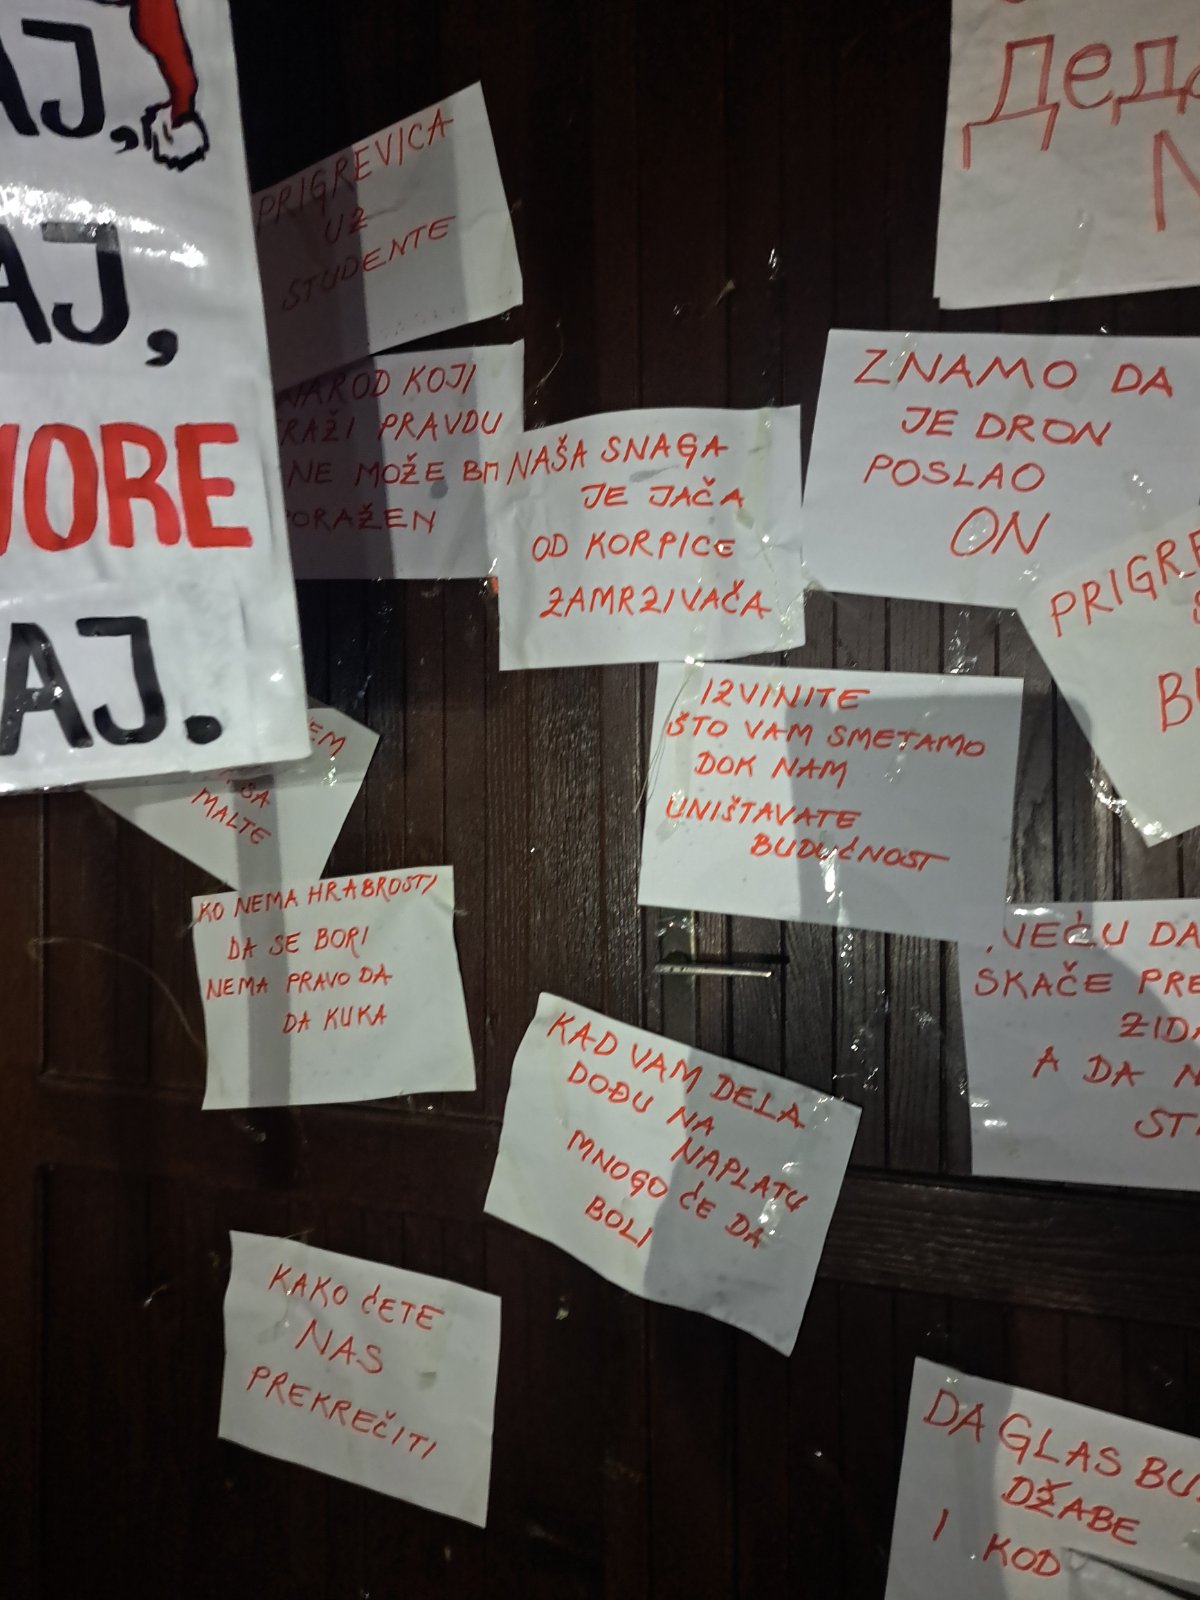 AJ,
AJ,
VORE
AJ.
PRIGREVICA
UZ
STUDENTE
NAROD KOJI
RAŽI PRAVDU
NE MOŽE BITI
PORAŽEN
NAŠA SNAGA
JE JAČA
OD KORPICE
ZAMRZIVAČA
ДеДа
N
ZNAMO DA
JE DRON
POSLAO
ON
PRIGRE
IZVINITE
ŠTO VAM SMETAMO
DOK NAM
UNIŠTAVATE
BUDUĆNOST
SA
MALTE
KO NEMA HRABROSTI
DA SE BORI
NEMA PRAVO DA
DA KUKA
KAD VAM DELA
DOĐU NA
NAPLATU
MNOGO ĆE DA
BOLI
NEĆU DA
SKAČE PRE
ZIDA
A DA N
ST
KAKO ĆETE
NAS
PREKREČITI
DA GLAS BU
DŽABE
I KOD